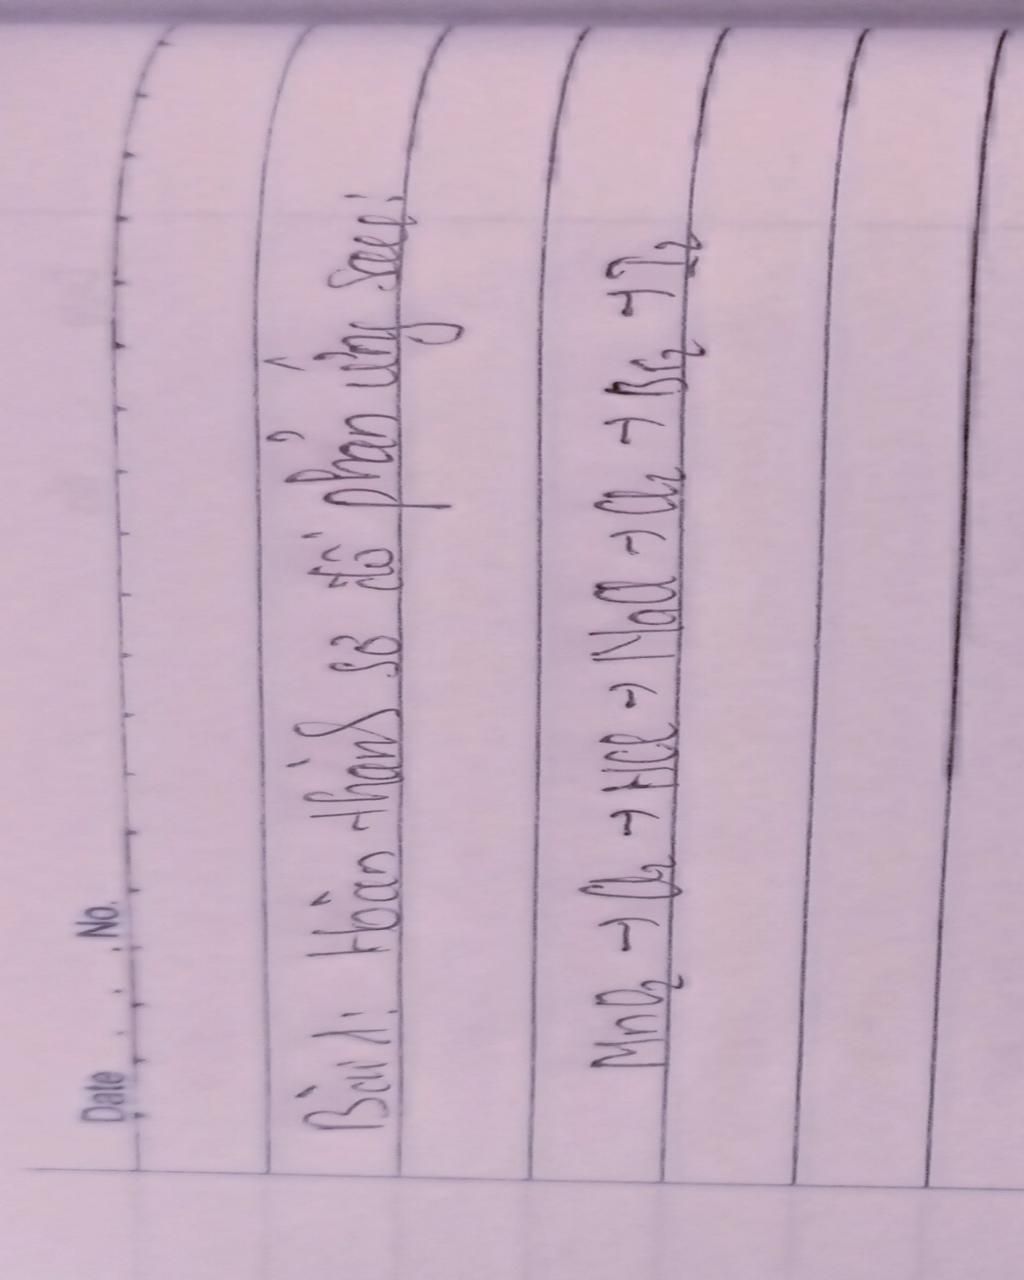 Date No.
Bài 1: Hoàn thành sơ đồ phản ứng sau:
MnO₂ → Cl₂ → HCl → NaCl → Cl₂ → Br₂ → I₂